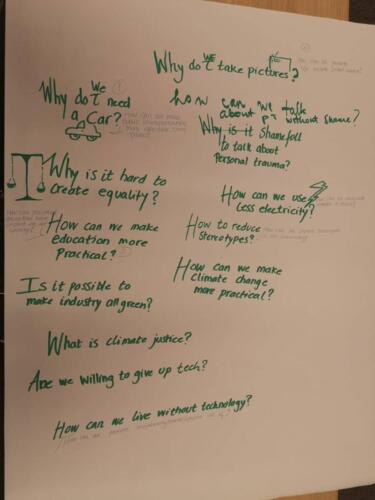 Why do I take pictures?
WE
Why do I need
We
a Car?
how can we talk
about PT without shame?
Why is it Shamefull
to talk about
Personal trauma?
Why is it hard to
create equality?
How can we use
less electricity?
How can we make
education more
Practical?
How to reduce
Stereotypes?
How can we make
climate change
more practical?
Is it possible to
make industry all green?
What is climate justice?
Are we willing to give up tech?
How can we live without technology?